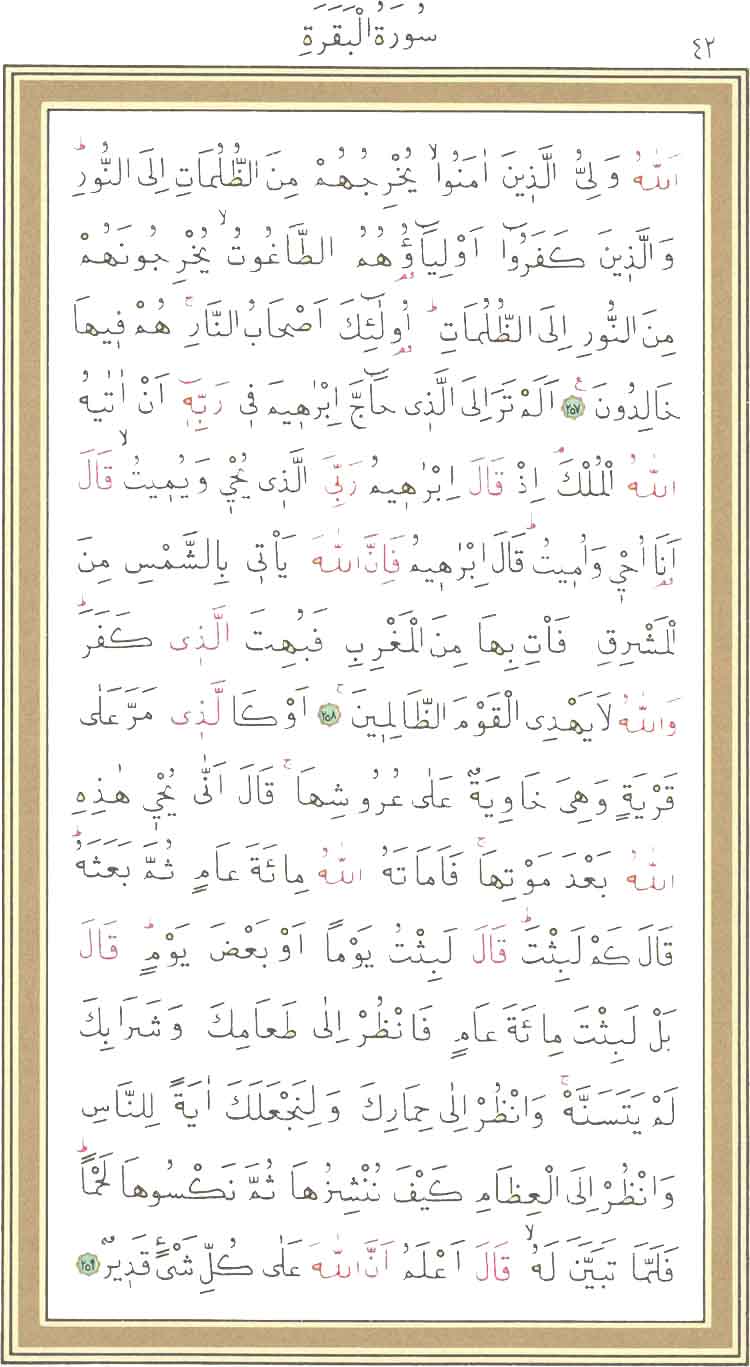 سُورَةُ الْبَقَرَةِ
٤٢
اَللّٰهُ وَلِيُّ الَّذ۪ينَ اٰمَنُواۙ يُخْرِجُهُمْ مِنَ الظُّلُمَاتِ اِلَى النُّورِۜ
وَالَّذ۪ينَ كَفَرُٓوا اَوْلِيَٓاؤُ۬هُمُ الطَّاغُوتُۙ يُخْرِجُونَهُمْ
مِنَ النُّورِ اِلَى الظُّلُمَاتِۜ اُو۬لٰٓئِكَ اَصْحَابُ النَّارِۚ هُمْ ف۪يهَا
خَالِدُونَ ﴿٢٥٧﴾ اَلَمْ تَرَ اِلَى الَّذ۪ي حَٓاجَّ اِبْرٰه۪يمَ ف۪ي رَبِّه۪ٓ اَنْ اٰتٰيهُ
اللّٰهُ الْمُلْكَۢ اِذْ قَالَ اِبْرٰه۪يمُ رَبِّيَ الَّذ۪ي يُحْي۪ وَيُم۪يتُۙ قَالَ
اَنَا۬ اُحْي۪ وَاُم۪يتُۜ قَالَ اِبْرٰه۪يمُ فَاِنَّ اللّٰهَ يَأْت۪ي بِالشَّمْسِ مِنَ
الْمَشْرِقِ فَأْتِ بِهَا مِنَ الْمَغْرِبِ فَبُهِتَ الَّذ۪ي كَفَرَۜ
وَاللّٰهُ لَا يَهْدِي الْقَوْمَ الظَّالِم۪ينَۚ ﴿٢٥٨﴾ اَوْ كَالَّذ۪ي مَرَّ عَلٰى
قَرْيَةٍ وَهِيَ خَاوِيَةٌ عَلٰى عُرُوشِهَاۚ قَالَ اَنّٰى يُحْي۪ هٰذِهِ
اللّٰهُ بَعْدَ مَوْتِهَاۚ فَاَمَاتَهُ اللّٰهُ مِائَةَ عَامٍ ثُمَّ بَعَثَهُۜ
قَالَ كَمْ لَبِثْتَۜ قَالَ لَبِثْتُ يَوْماً اَوْ بَعْضَ يَوْمٍۜ قَالَ
بَلْ لَبِثْتَ مِائَةَ عَامٍ فَانْظُرْ اِلٰى طَعَامِكَ وَشَرَابِكَ
لَمْ يَتَسَنَّهْۚ وَانْظُرْ اِلٰى حِمَارِكَ وَلِنَجْعَلَكَ اٰيَةً لِلنَّاسِ
وَانْظُرْ اِلَى الْعِظَامِ كَيْفَ نُنْشِزُهَا ثُمَّ نَكْسُوهَا لَحْماًۜ
فَلَمَّا تَبَيَّنَ لَهُۙ قَالَ اَعْلَمُ اَنَّ اللّٰهَ عَلٰى كُلِّ شَيْءٍ قَد۪يرٌ ﴿٢٥٩﴾